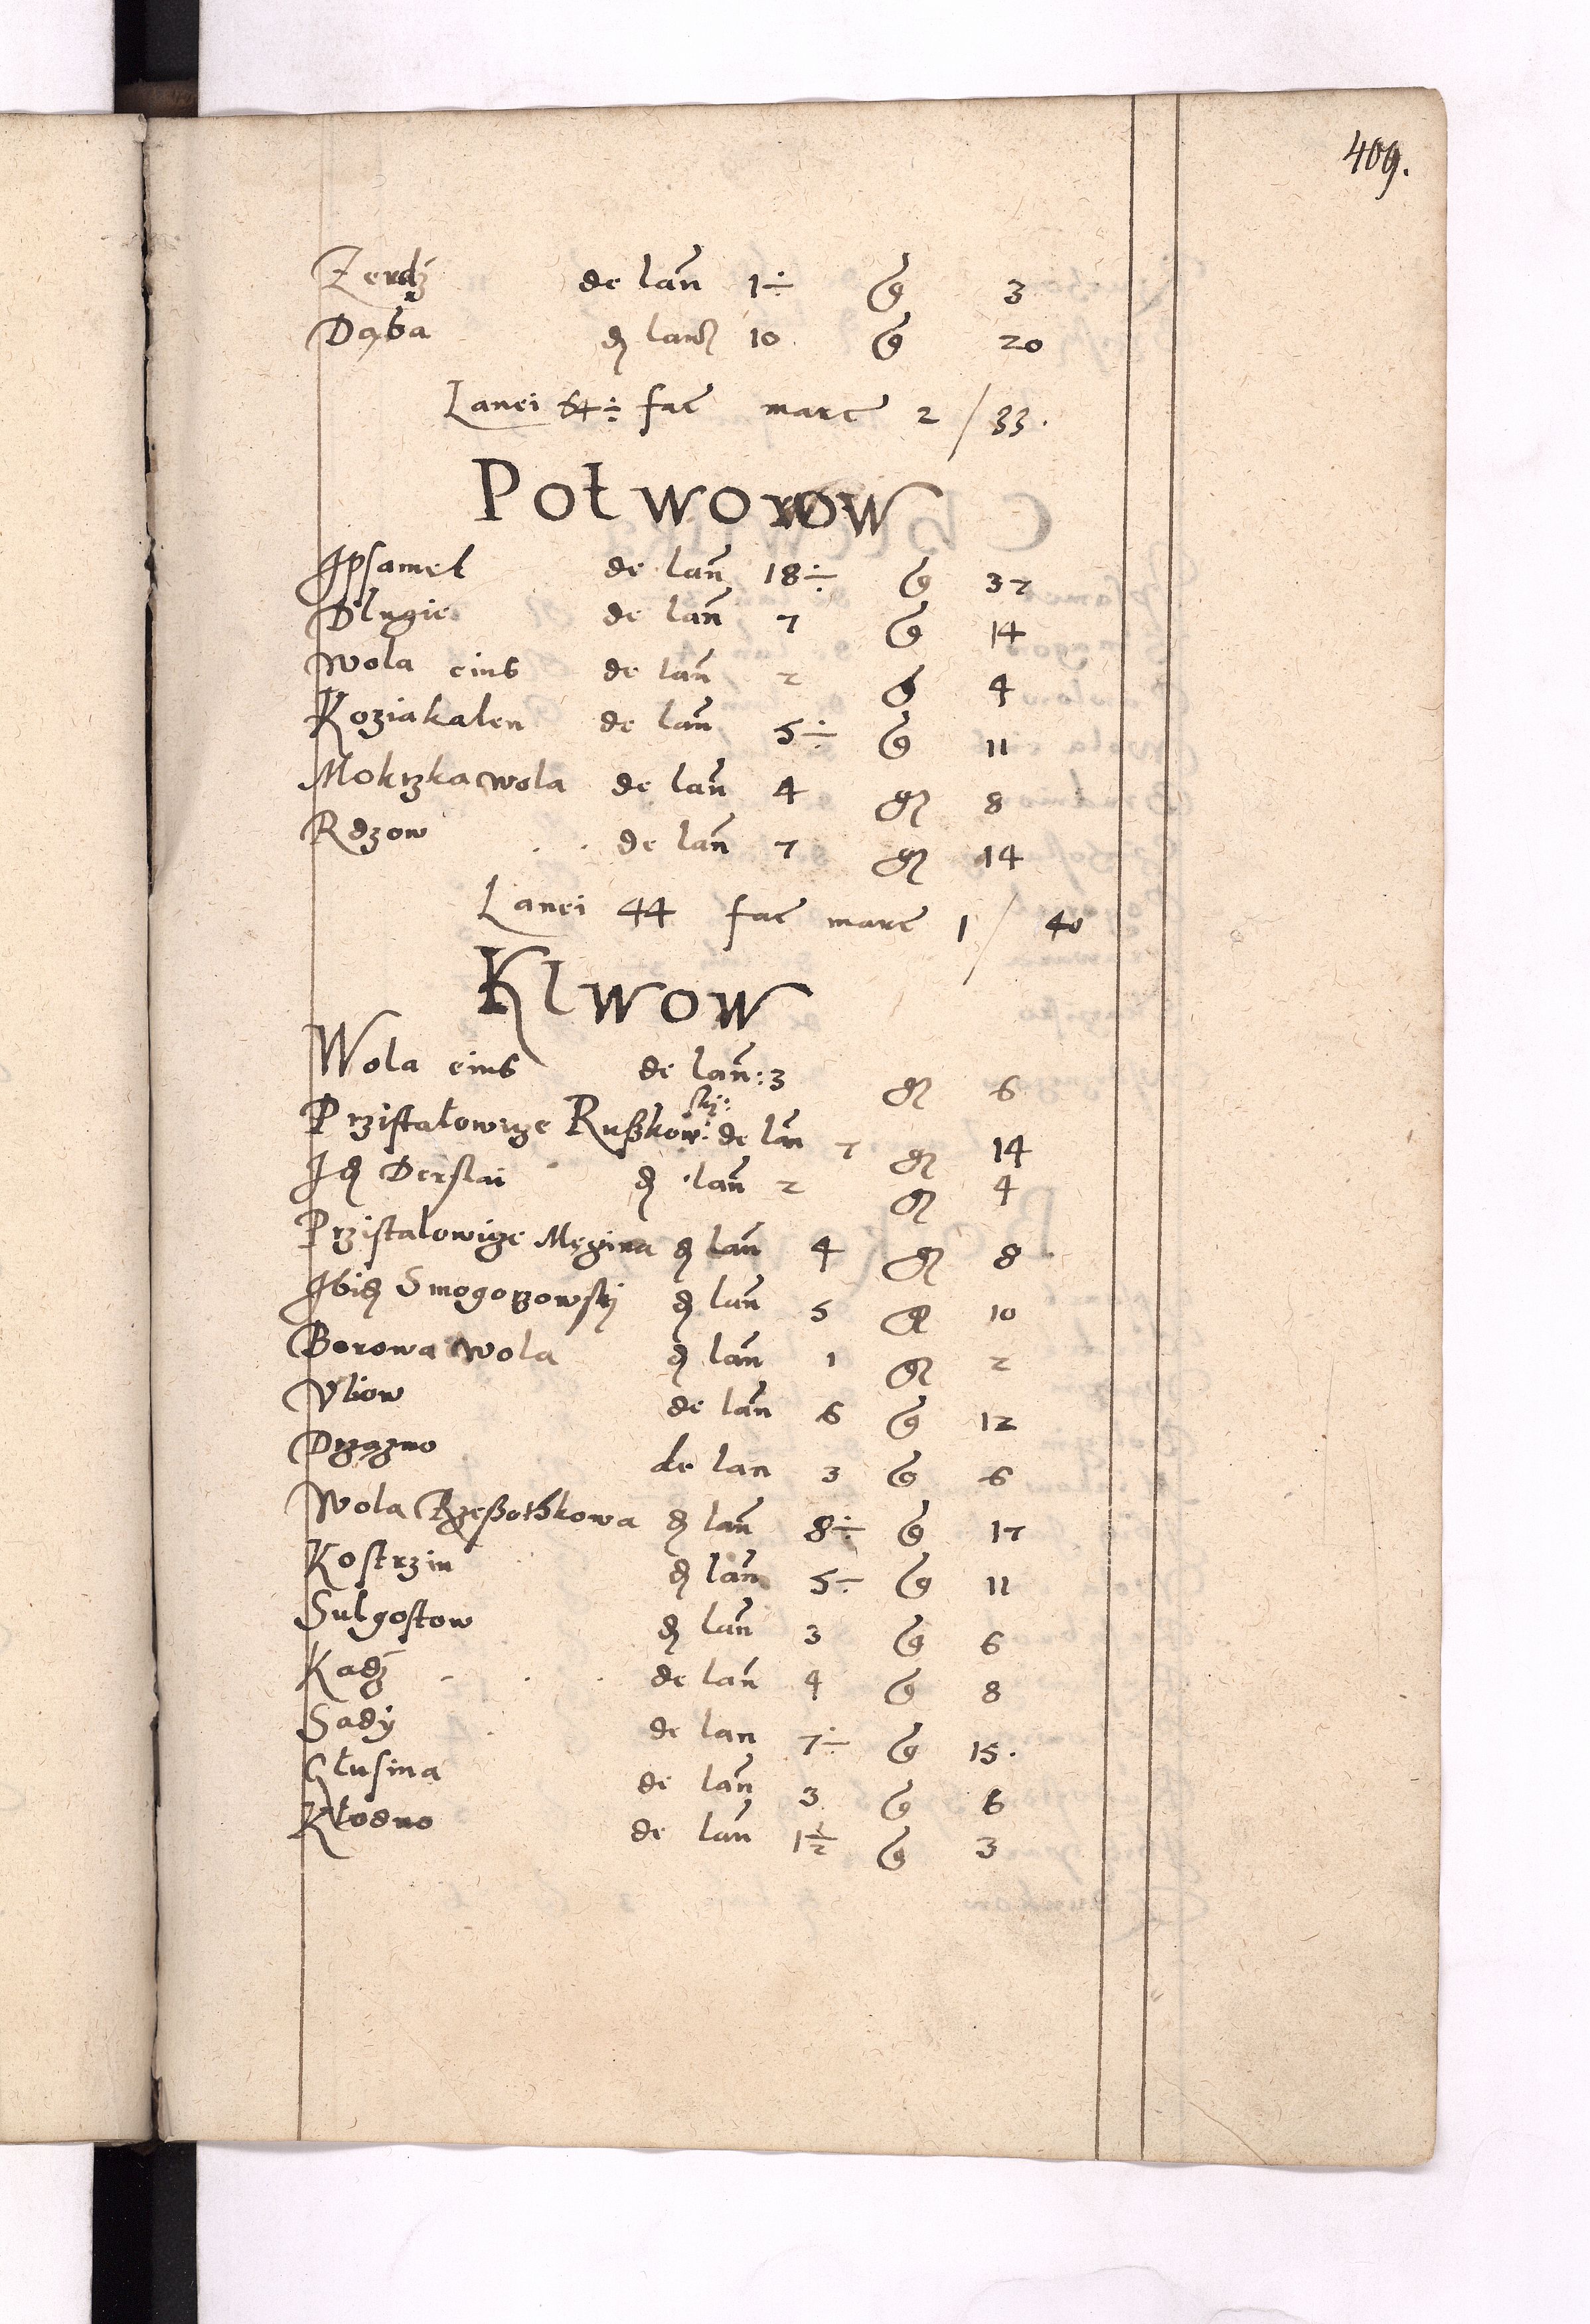 409.
Zerdź de lan̄ 1÷ g 3
Dąba de lan 10 g 20
Lanei 64÷ fac marc 2 / 33.
Potworow
Ipsamet de lan̄ 18÷ g 37
Dlugie de lan̄ 7 g 14
Wola eius de lan̄ 2 g 4
Koziakalen de lan̄ 5÷ g 11
Mokrzka wola de lan̄ 4 g 8
Rdzow de lan̄ 7 g 14
Lanei 44 fac marc 1 / 40
Klwow
Wola eius de lan̄: 3 g 6
Przistałowicze Rußkowskj: de lan̄ 7 g 14
Id Derslai d lan̄ 2 g 4
Przistalowicze Męzina d lan̄ 4 g 8
Ibid Smogorzowskj d lan̄ 5 g 10
Borowa Wola d lan̄ 1 g 2
Vliow de lan̄ 6 g 12
Drzązno de lan 3 g 6
Wola Rzeßothkowa d lan̄ 8÷ g 17
Kostrzin d lan̄ 5÷ g 11
Sulgostow d lan̄ 3 g 6
Kadź de lan̄ 4 g 8
Sady de lan 7÷ g 15.
Głusina de lan̄ 3 g 6
Kłodno de lan̄ 1½ g 3